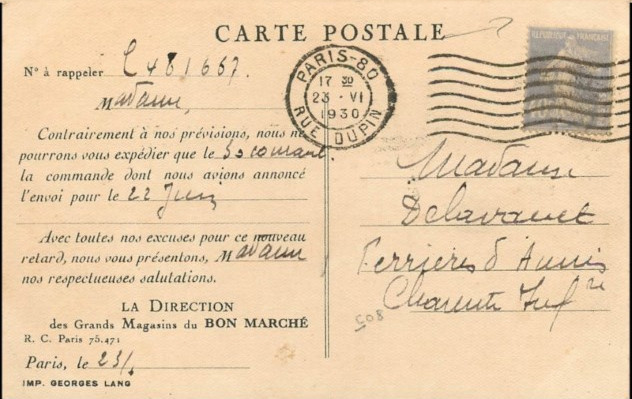 CARTE POSTALE
N° à rappeler L 481667.
Madame,
Contrairement à nos prévisions, nous ne
pourrons vous expédier que le 30 courant.
la commande dont nous avions annoncé
l'envoi pour le 22 Juin
Avec toutes nos excuses pour ce nouveau
retard, nous vous présentons, Madame
nos respectueuses salutations.
LA DIRECTION
des Grands Magasins du BON MARCHÉ
R. C. Paris 75.471
Paris, le 23/
IMP. GEORGES LANG
PARIS-80
17 30
23 · VI
1930
RUE DUPIN
REPUBLIQUE FRANÇAISE
Madame
Ferrières d'Aunis
Charente Infre
508